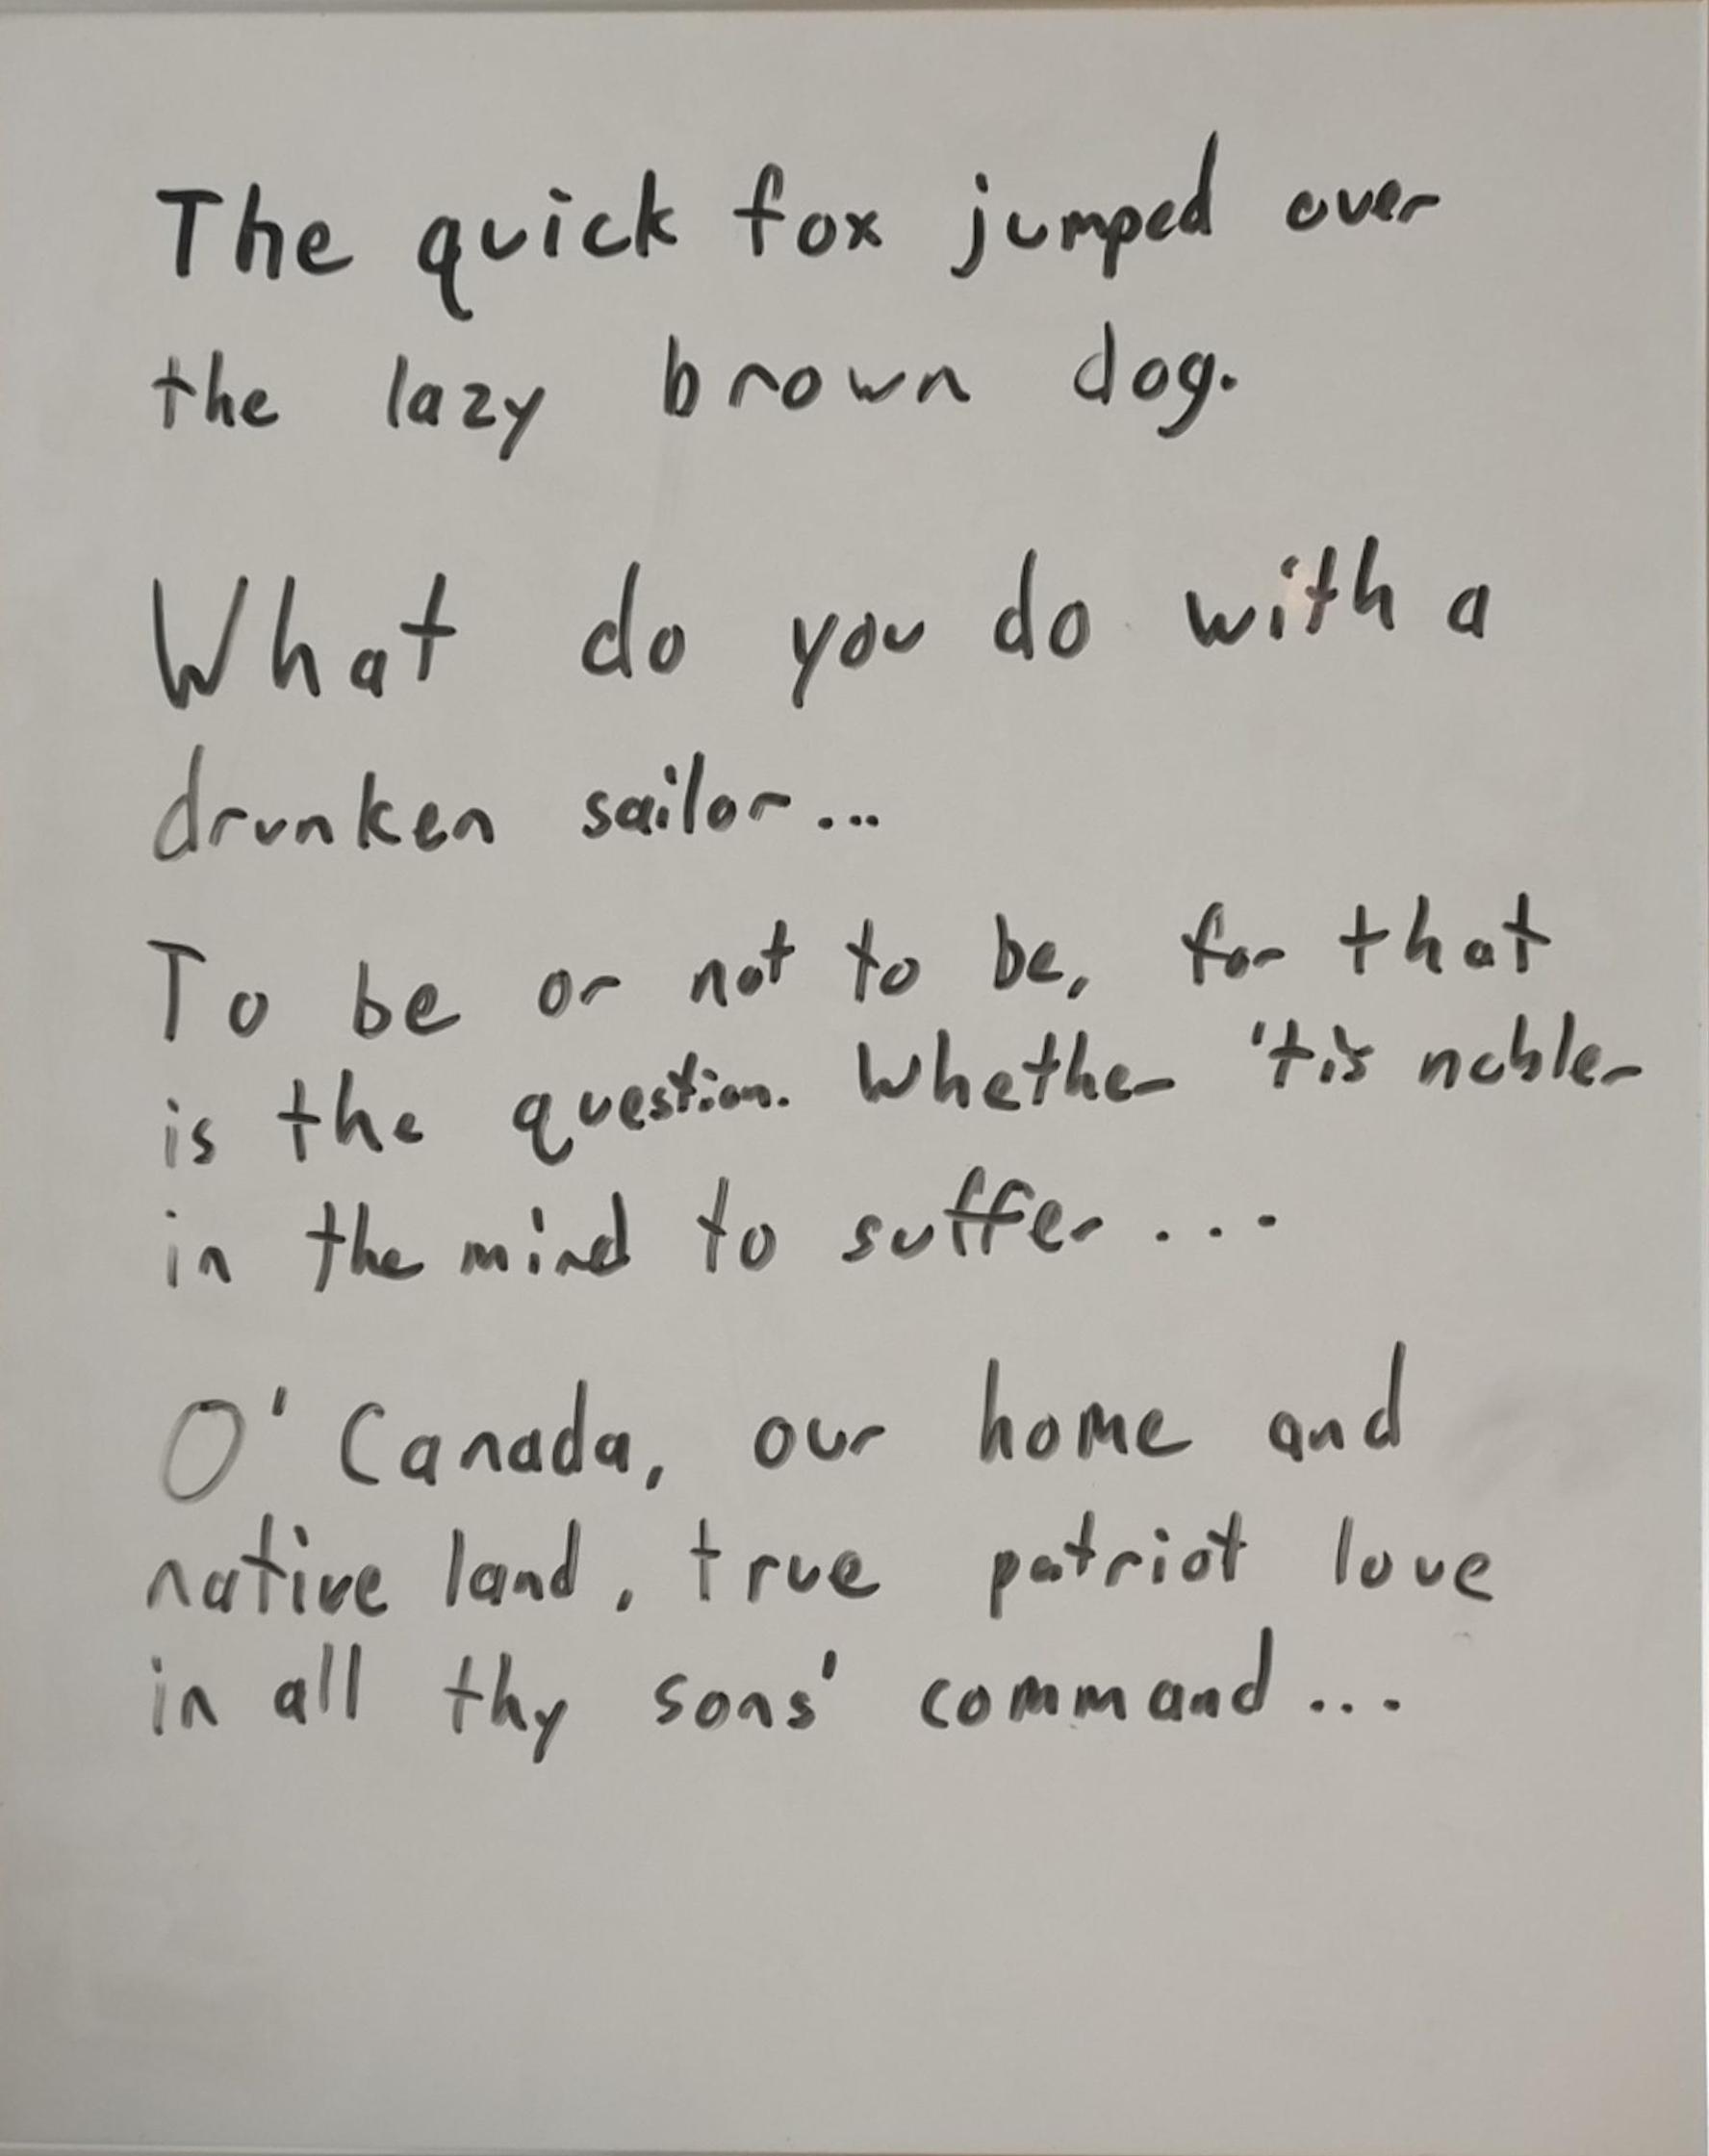 The quick fox jumped over
the lazy brown dog.
What do you do with a
drunken sailor...
To be or not to be, for that
is the question. Whether 'tis nobler
in the mind to suffer...
O' Canada, our home and
native land, true patriot love
in all thy sons' command...